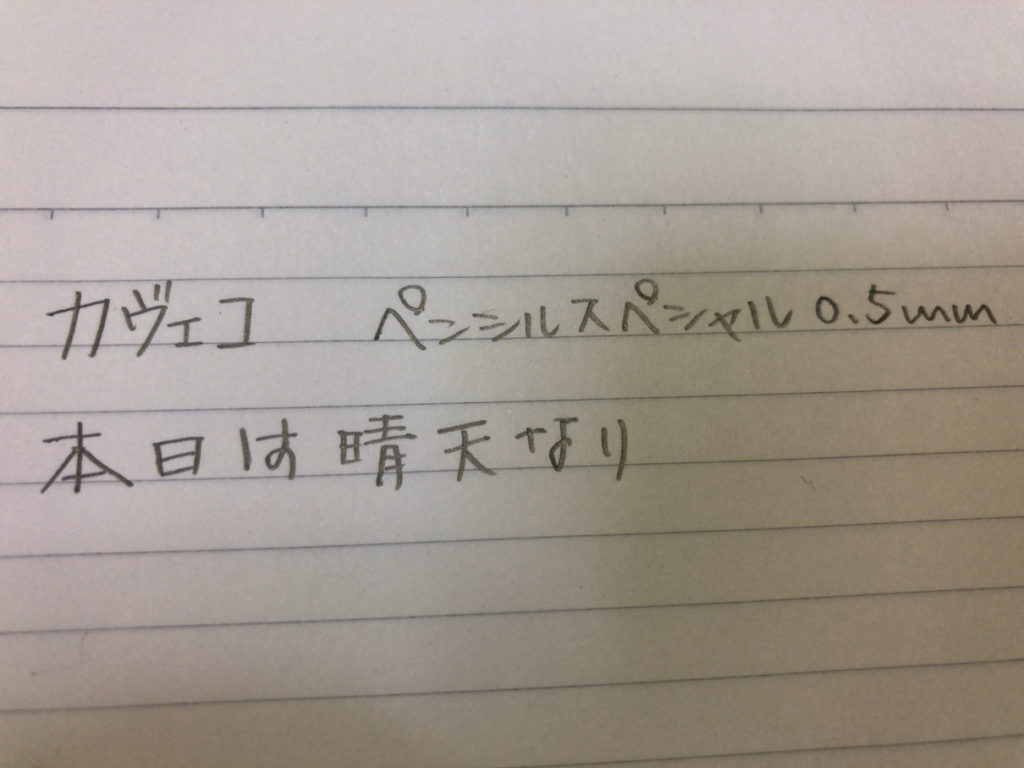 カヴェコ ペンシルスペシャル 0.5mm
本日は晴天なり